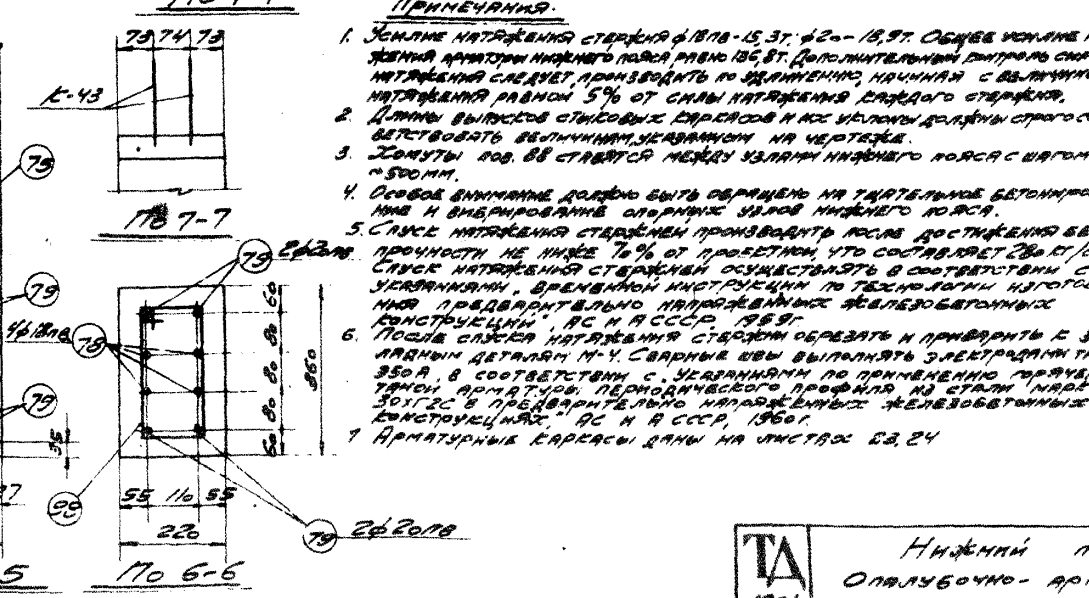 Примечания.
1. Усилие натяжения стержня ф18пв-15,3т; ф20-18,9т. Общее усилие
жения арматуры нижнего пояса равно 136,8т. Дополнительный контроль
натяжения следует производить по удлинению, начиная с величины
натяжения равной 5% от силы натяжения каждого стержня.
2. Длины выпусков стыковых каркасов и их уклоны должны строго
ветствовать величинам, указанным на чертеже.
3. Хомуты поз. 88 ставятся между узлами нижнего пояса с шагом
~500мм.
4. Особое внимание должно быть обращено на тщательное бетониро
ние и вибрирование опорных узлов нижнего пояса.
5. Спуск натяжения стержней производить после достижения
прочности не ниже 70% от проектной, что составляет 280 кг/
Спуск натяжения стержней осуществлять в соответствии с
указаниями "Временной инструкции по технологии изгото
ния предварительно напряженных железобетонных
конструкций", АС и А СССР, 1959г.
6. После спуска натяжения стержни обрезать и приварить к
ладным деталям М-4. Сварные швы выполнять электродами
Э50А, в соответствии с "Указаниями по применению горяче
танной арматуры периодического профиля из стали
30ХГ2С в предварительно напряженных железобетонных
конструкциях", АС и А СССР, 1960г.
7 Арматурные каркасы даны на листах 23, 24
73 74 73
К-43
75
По 7-7
79 2ф20пв
79
4ф18пв 78
60 80 80 80 60
360
79
35
99
55 110 55
220
79 2ф20пв
5
По 6-6
ТА
Нижний
Опалубочно-